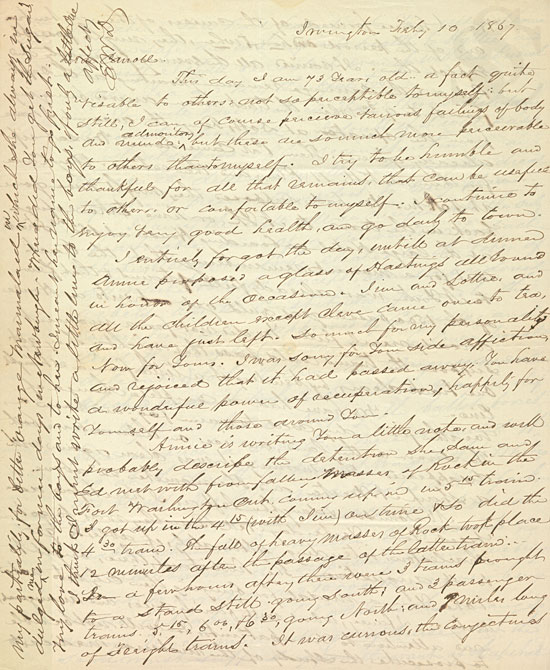 Irvington Feby 10 1867
This day I am 73 Years old - a fact quite
visable to others: not so preceptible to myself: but
still, I can of course perceive various failings of body
and admonitory, but these are so much more perceivable
to others than to myself. I try to be humble and
thankful for all that remains, that can be useful
to others, or comfortable to myself. I continue to
enjoy very good health, and go daily to town.
I entirely forgot the day, until at dinner
Annie proposed a glass of Hastings all round
in honor of the Occasion. Jim and Lottie, and
all the children except Cleve came over to tea,
and have just left. So much for my personality
Now for Yours. I was sorry for Your side affliction,
and rejoiced that it had passed away. You have
a wonderful power of recuperation, happily for
Yourself and those around You.
Annie is writing You a little note, and will
probably describe the detention Sheridan and
Ed met with from fallen Masses of Rock in the
Fort Washington Cut, coming up in 5 15 train.
I got up in the 4 15 (with Jim) on time & so did the
4 30 train. The fall of heavy masses of Rock took place
12 minutes after the passage of the latter train.
For a few hours after there were 3 trains brought
to a stand still - going South, and 3 passenger
trains 5.15, 6.00, & 6 30 going North; and miles long
of Freight trains. It was curious, the conjectures
my love to the boys and to her. Since she began
I think I must write a little line to the